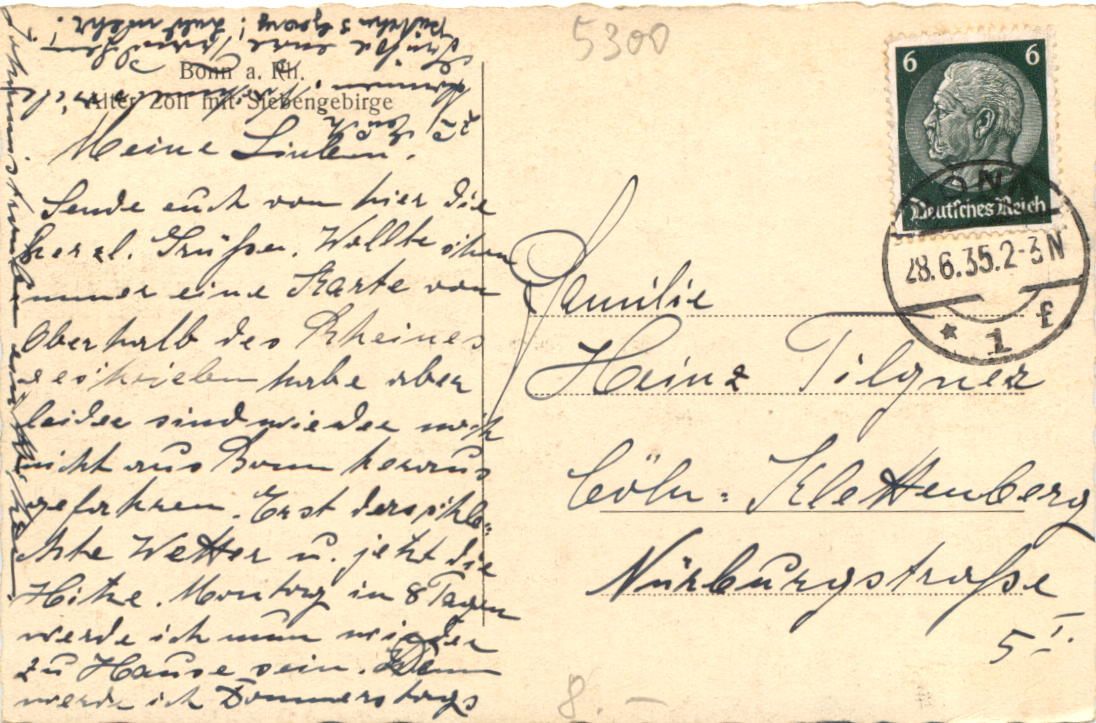 Bonn a. Rh.
Alter Zoll mit Siebengebirge
Meine Lieben.
Sende euch von hier die
herzl. Grüße. Wollte schon
immer eine Karte von
Oberhalb des Rheines
geschrieben habe aber
leider sind wieder noch
nicht aus Bonn heraus
gefahren. Erst das schle-
chte Wetter u. jetzt die
Hitze. Montag in 8 Tagen
werde ich nun wieder
zu Hause sein. Dann
werde ich Donnerstags
zu Euch
kommen
eure
5300
6 6
Deutsches Reich
BONN
28.6.35.2-3N
* 1 f
Familie
Heinz Tilgner
Cöln-Klettenberg
Nürburgstraße
5 I.
8.-